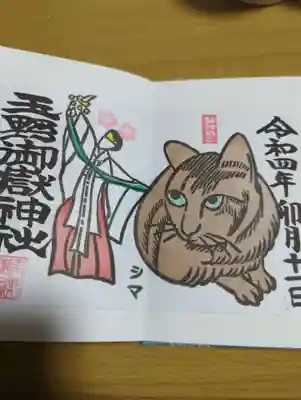 令和四年卯月十一日
シマ
玉野御嶽神社